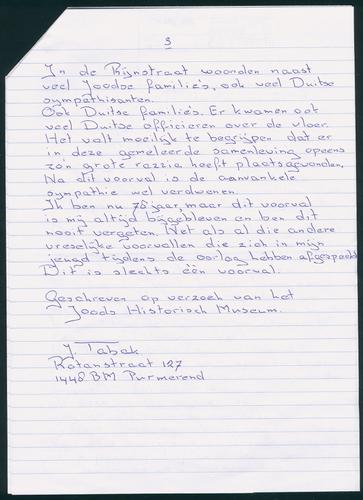 3
In de Rijnstraat woorden naast
veel Joodse families, ook veel Duitse
sympathisanten.
Ook Duitse families. Er kwamen ook
veel Duitse officieren over de vloer.
Het valt moeilijk te begrijpen dat er
in deze gemeleerde samenleving opeens
zo'n grote razzia heeft plaatsgevonden.
Na dit voorval is de aanvankele
sympathie wel verdwenen.
Ik ben nu 78 jaar, maar dit voorval
is mij altijd bijgebleven en ben dit
nooit vergeten. Net als al die andere
vreselijke voorvallen die zich in mijn
jeugd tijdens de oorlog hebben afgespeeld
Dit is slechts één voorval.
Geschreven op verzoek van het
Joods Historisch Museum.
J. Tabak.
Rotanstraat 127
1448 BM Purmerend